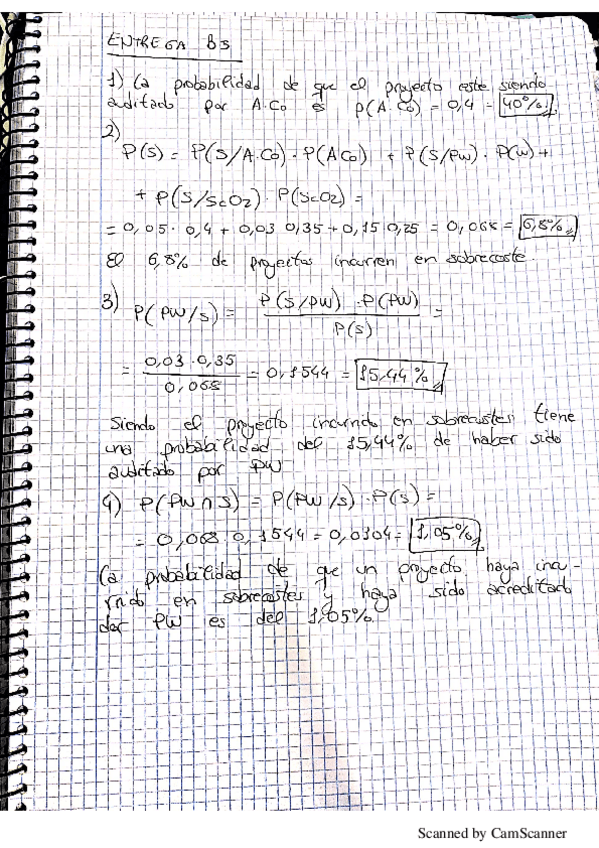 ENTREGA B5
1) La probabilidad de que el proyecto este siendo
auditado por A.Co es P(A.Co) = 0,4 = 40%
2)
P(S) = P(S/A.Co) · P(ACo) + P(S/PW) · P(W) +
+ P(S/ScO2) · P(ScO2) =
= 0,05 · 0,4 + 0,03 0,35 + 0,15 0,25 = 0,068 = 6,8%
El 6,8% de proyectos incurren en sobrecoste.
3) P(PW/S) = P(S/PW) · P(PW) / P(S) =
= 0,03 · 0,35 / 0,068 = 0,1544 = 15,44%
Siendo el proyecto incurrido en sobrecostes tiene
una probabilidad del 15,44% de haber sido
auditado por PW
4) P(PW ∩ S) = P(PW/S) · P(S) =
= 0,068 · 0,1544 = 0,0104 = 1,05%
La probabilidad de que un proyecto haya incu-
rrido en sobrecostes y haya sido acreditado
por PW es del 1,05%
Scanned by CamScanner